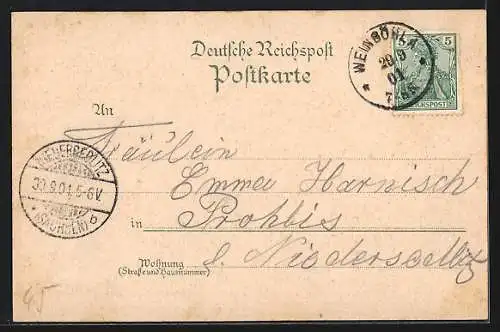 Deutsche Reichspost
Postkarte
WEINBÖHLA
29 9
01
7-8N
5
REICHSPOST
An
Fräulein
Emma Harnisch
in Prohlis
b. Niedersedlitz
NIEDERSEDLITZ
30.9.01.5-6V.
(SACHSEN) b
Wohnung
(Straße und Hausnummer)
45